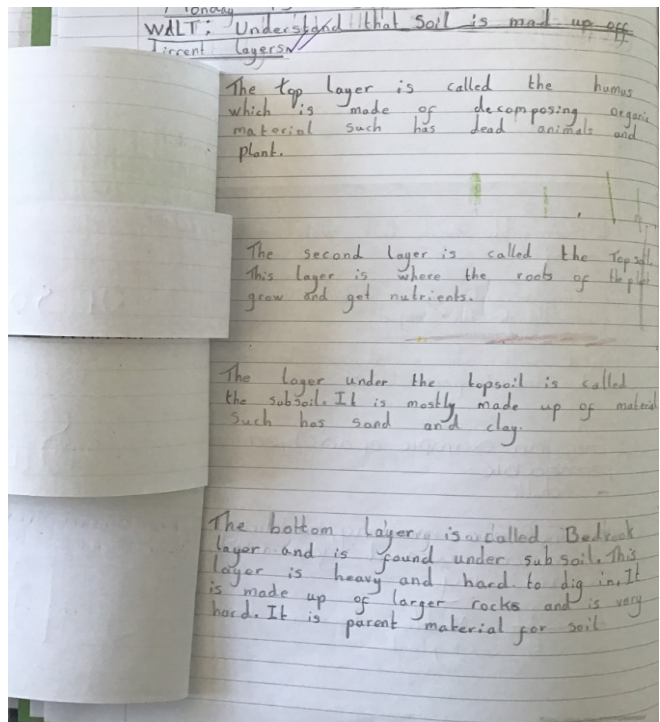 WALT: Understand that soil is mad up off
Jirrent layers
The top layer is called the humus
which is made of decomposing organic
material such has dead animals and
plant.
The second layer is called the Topsoil.
This layer is where the roots of the plant
grow and get nutrients.
The layer under the topsoil is called
the subsoil. It is mostly made up of material
such has sand and clay.
The bottom layer is called Bedrock
layer and is found under sub soil. This
layer is heavy and hard to dig in. It
is made up of larger rocks and is very
hard. It is parent material for soil